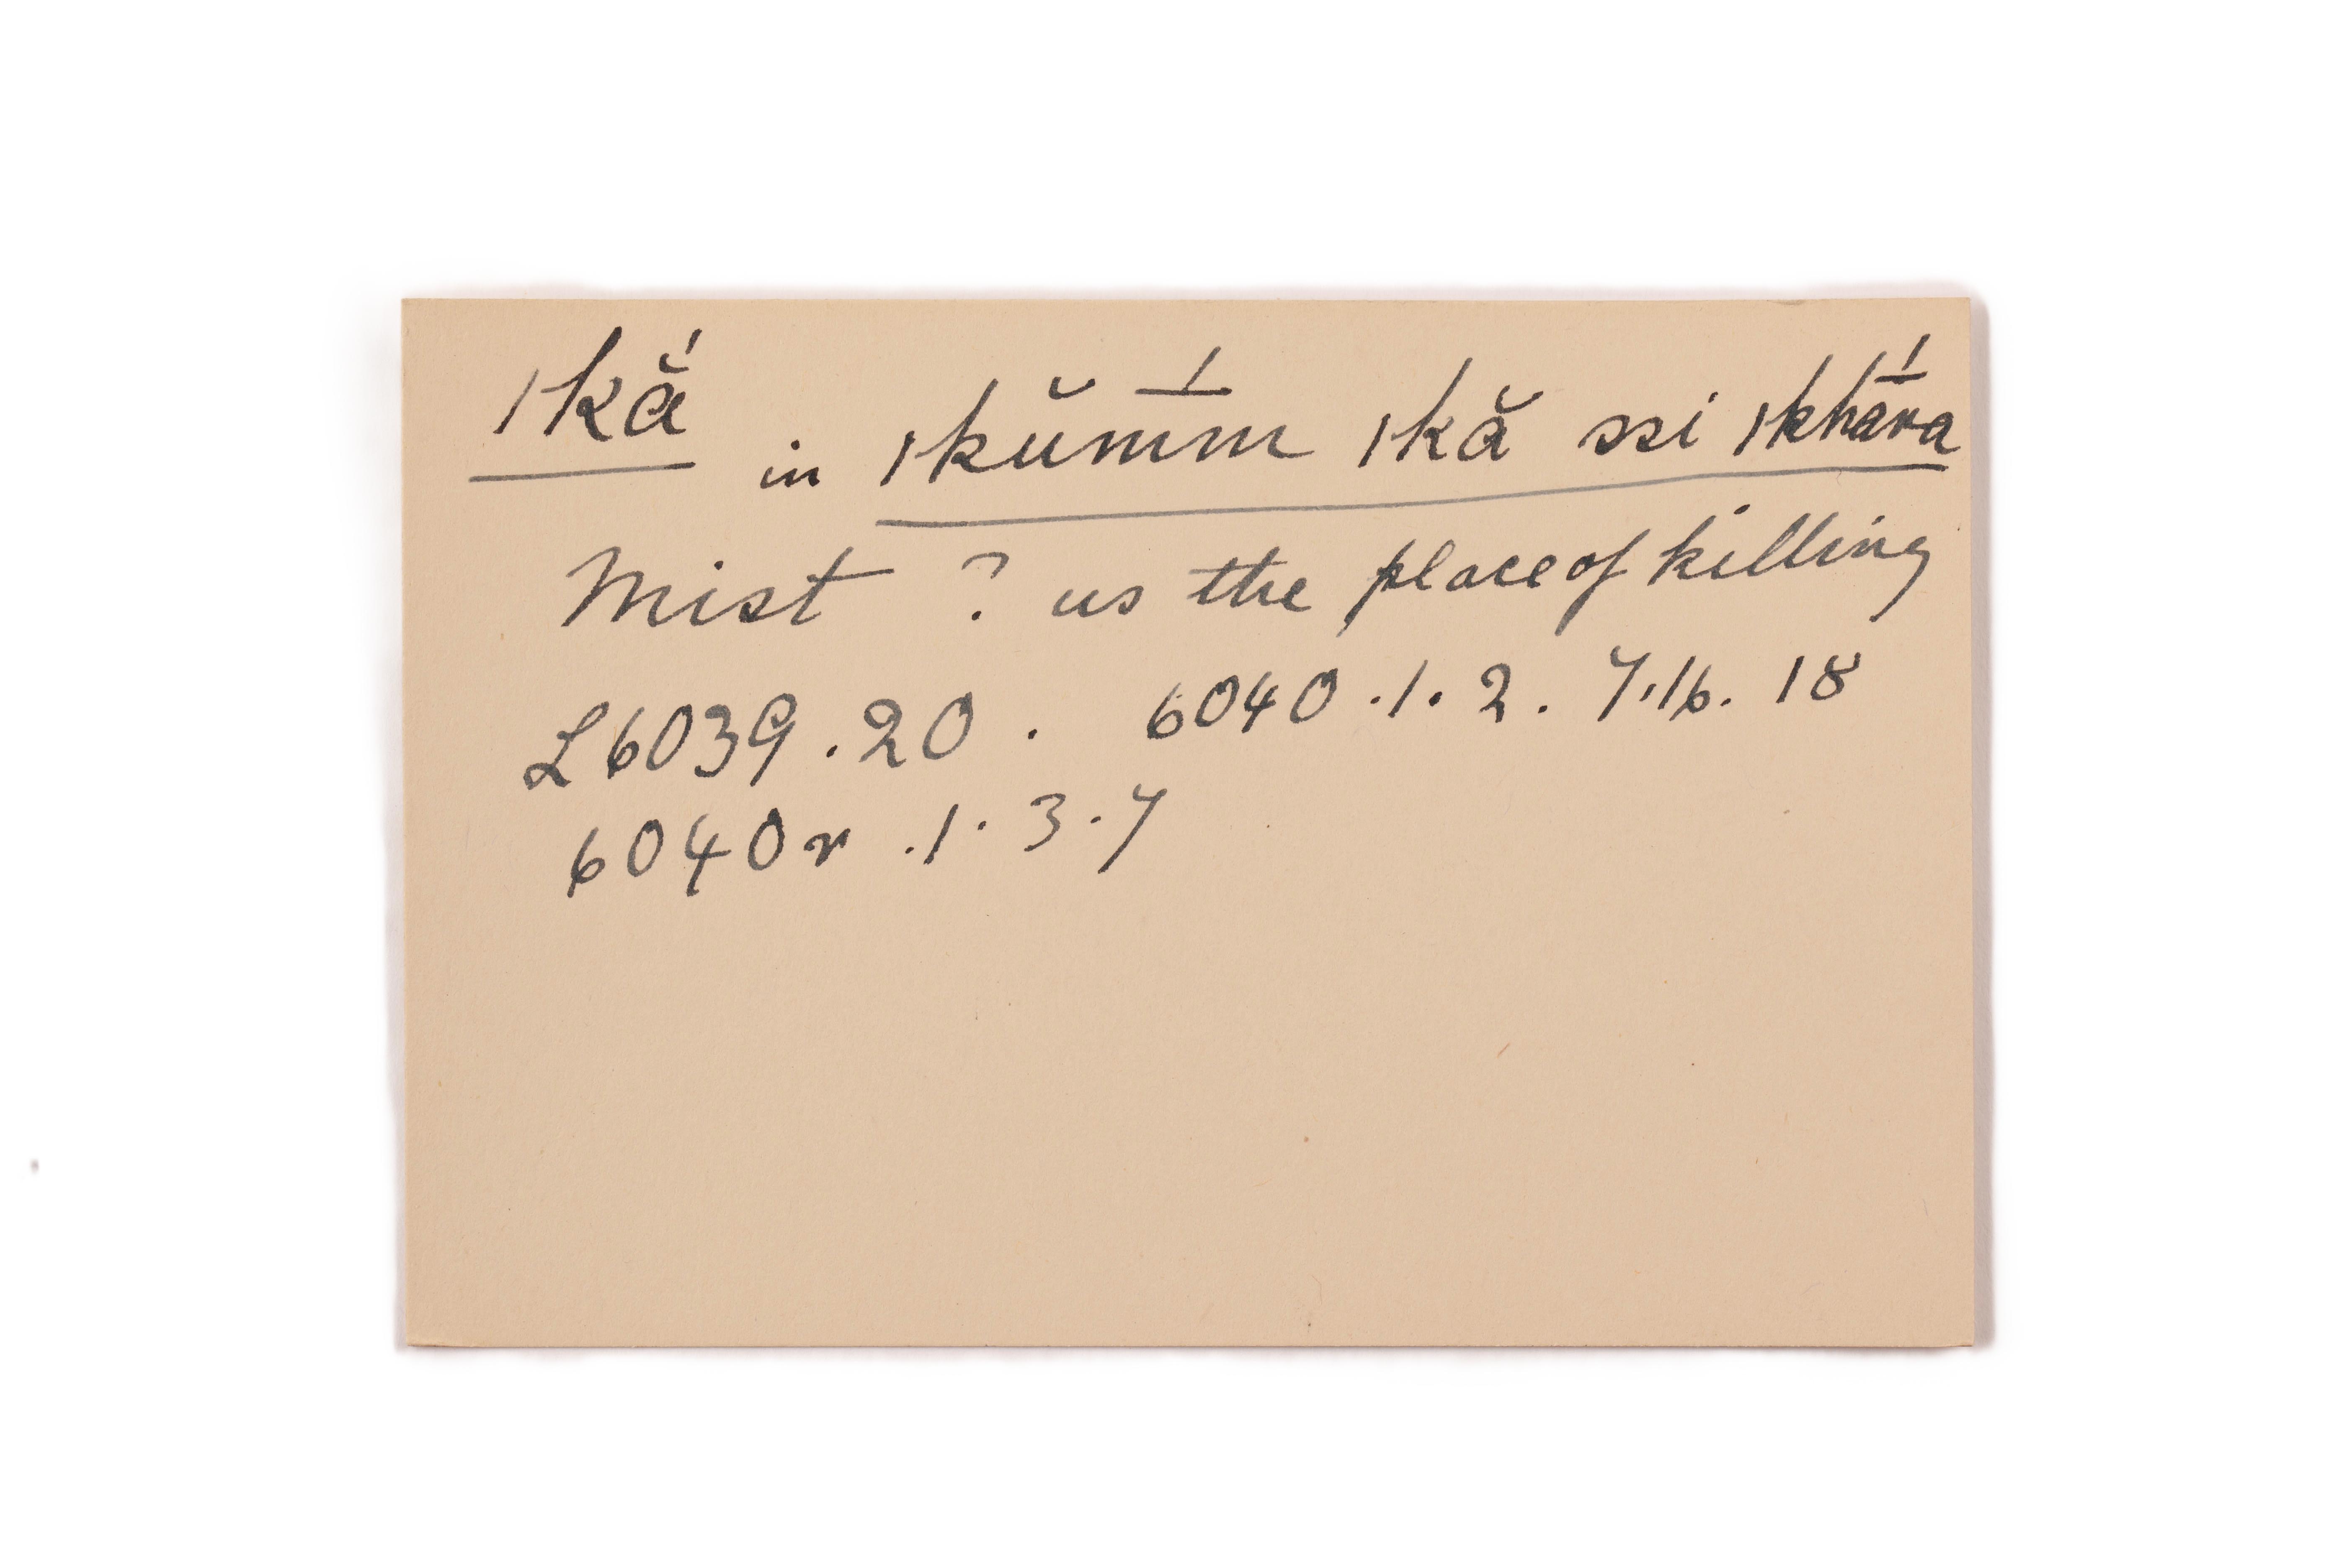 ǀkắ in ǀkŭm̄́m ǀkă ssi ǀkhā́ra
Mist ? us the place of killing
L6039.20. 6040.1.2.7.16.18
6040r.1.3.7